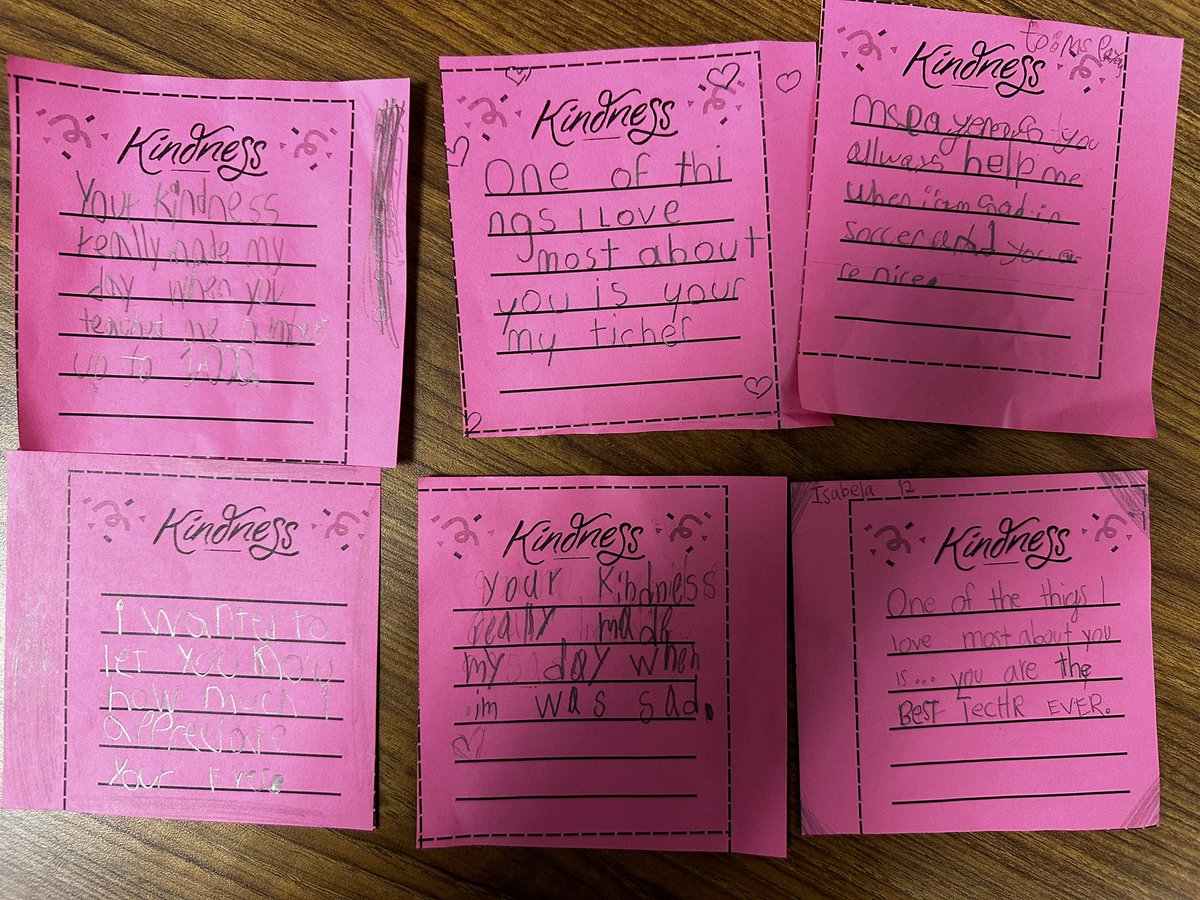 Kindness
Your kindness
really made my
day when you
teachet me numbers
up to 1,000
Kindness
One of thi
ngs I Love
most about
you is your
my ticher
to: Ms
Kindness
you
allways help me
when i am sad in
soccer and you are
re nice.
Kindness
i wanted to
let you know
how much I
appreciate
your
Kindness
your kindness
really made
my day when
im was sad.
Isabela 12
Kindness
One of the things I
love most about you
is... you are the
BEST TecHR EVER.